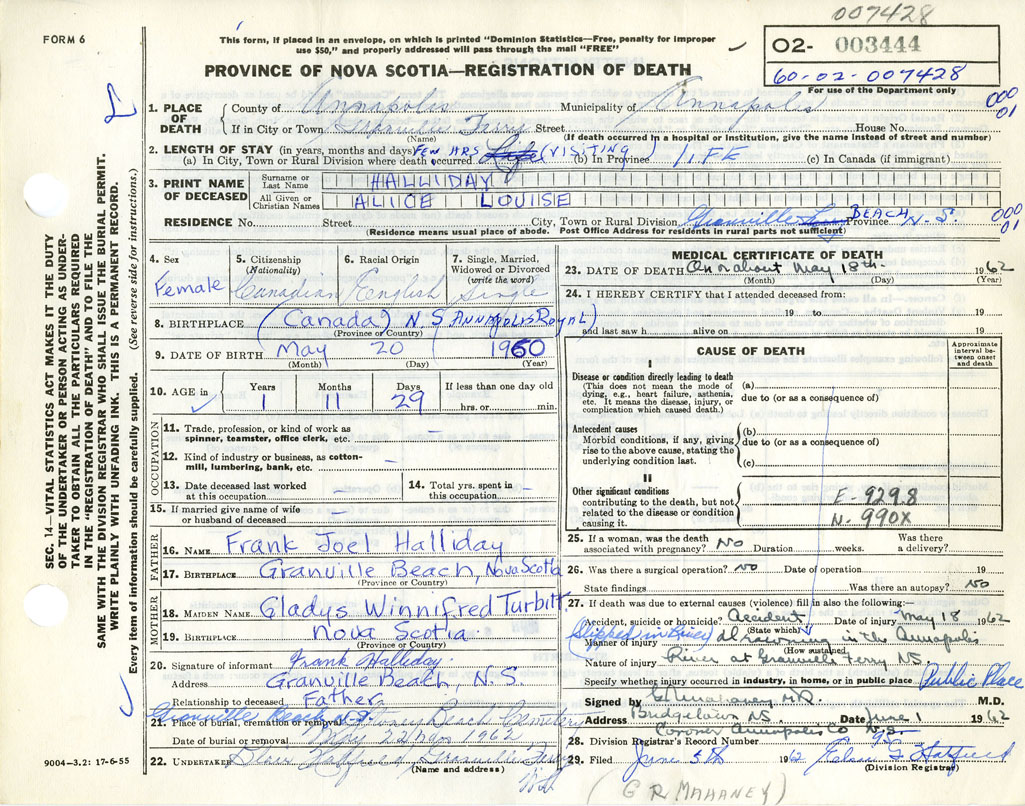 007428
FORM 6
This form, if placed in an envelope, on which is printed "Dominion Statistics—Free, penalty for improper
use $50," and properly addressed will pass through the mail "FREE"
PROVINCE OF NOVA SCOTIA—REGISTRATION OF DEATH
02- 003444
60-02-007428
For use of the Department only
000
01
SEC. 14—VITAL STATISTICS ACT MAKES IT THE DUTY
OF THE UNDERTAKER OR PERSON ACTING AS UNDER-
TAKER TO OBTAIN ALL THE PARTICULARS REQUIRED
IN THE "REGISTRATION OF DEATH" AND TO FILE THE
SAME WITH THE DIVISION REGISTRAR WHO SHALL ISSUE THE BURIAL PERMIT.
WRITE PLAINLY WITH UNFADING INK. THIS IS A PERMANENT RECORD.
Every item of information should be carefully supplied. (See reverse side for instructions.)
1. PLACE OF DEATH
County of Annapolis Municipality of Annapolis
If in City or Town Granville Ferry Street House No.
(Name) (If death occurred in a hospital or institution, give the name instead of street and number)
2. LENGTH OF STAY (in years, months and days) FEW HRS Life (VISITING)
(a) In City, Town or Rural Division where death occurred (b) In Province LIFE (c) In Canada (if immigrant)
3. PRINT NAME OF DECEASED
Surname or Last Name HALLIDAY
All Given or Christian Names ALICE LOUISE
RESIDENCE No. Street City, Town or Rural Division Granville Ferry BEACH Province N.S.
(Residence means usual place of abode. Post Office Address for residents in rural parts not sufficient)
000
01
4. Sex Female
5. Citizenship (Nationality) Canadian
6. Racial Origin English
7. Single, Married, Widowed or Divorced (write the word) Single
8. BIRTHPLACE (Canada) N.S ANNAPOLIS ROYAL
(Province or Country)
9. DATE OF BIRTH May 20 1960
(Month) (Day) (Year)
10. AGE in Years 1 Months 11 Days 29 If less than one day old hrs. or min.
OCCUPATION
11. Trade, profession, or kind of work as
spinner, teamster, office clerk, etc. –
12. Kind of industry or business, as cotton-
mill, lumbering, bank, etc. –
13. Date deceased last worked
at this occupation –
14. Total yrs. spent in
this occupation –
15. If married give name of wife
or husband of deceased –
FATHER
16. NAME Frank Joel Halliday
17. BIRTHPLACE Granville Beach, Nova Scotia
(Province or Country)
MOTHER
18. MAIDEN NAME Gladys Winnifred Turbitt
19. BIRTHPLACE Nova Scotia
(Province or Country)
20. Signature of informant Frank Halliday.
Address Granville Beach, N.S.
Relationship to deceased Father
21. Place of burial, cremation or removal Granville Beach N.S. Beach Cemetery
Date of burial or removal May 22 1962
22. UNDERTAKER Hatfield Granville Ferry
(Name and address)
N.S.
9004—3.2: 17-6-55
MEDICAL CERTIFICATE OF DEATH
23. DATE OF DEATH On or about May 18th 1962
(Month) (Day) (Year)
24. I HEREBY CERTIFY that I attended deceased from:
19 to 19
and last saw h alive on 19
CAUSE OF DEATH
Approximate interval between onset and death
I
Disease or condition directly leading to death
(This does not mean the mode of
dying, e.g., heart failure, asthenia,
etc. It means the disease, injury, or
complication which caused death.)
(a)
due to (or as a consequence of)
Antecedent causes
Morbid conditions, if any, giving
rise to the above cause, stating the
underlying condition last.
(b)
due to (or as a consequence of)
(c)
II
Other significant conditions
contributing to the death, but not
related to the disease or condition
causing it.
E-929.8
N-990X
25. If a woman, was the death
associated with pregnancy? NO Duration weeks. Was there a delivery?
26. Was there a surgical operation? NO Date of operation 19
State findings Was there an autopsy? NO
27. If death was due to external causes (violence) fill in also the following:—
Accident, suicide or homicide? Accident Date of injury May 18 1962
(State which)
Manner of injury drowning in the Annapolis
(How sustained)
Nature of injury River at Granville Ferry N.S.
Specify whether injury occurred in industry, in home, or in public place Public Place
Signed by M.D.
Address Bridgetown N.S. Date June 1 1962
Coroner Annapolis Co N.S.
28. Division Registrar's Record Number
29. Filed June 5th 1962 Hatfield
(Division Registrar)
(G R MAHANEY)